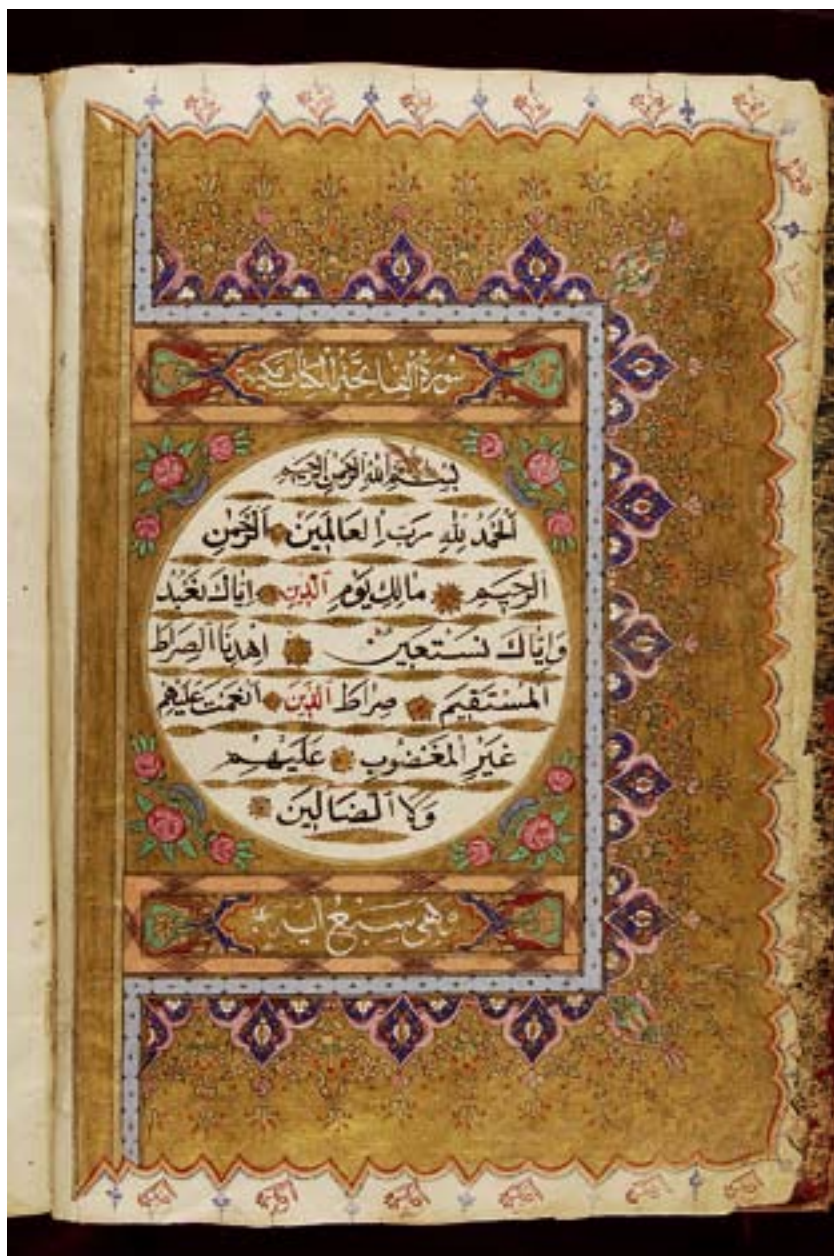 سورة الفاتحة الكتاب مكية
بسم الله الرحمن الرحيم
الحمد لله رب العالمين الرحمن
الرحيم مالك يوم الدين اياك نعبد
واياك نستعين اهدنا الصراط
المستقيم صراط الذين انعمت عليهم
غير المغضوب عليهم
ولا الضالين
وهي سبع آيات